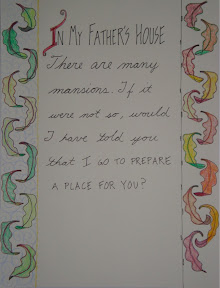 IN MY FATHER'S HOUSE
There are many
mansions. If it
were not so, would
I have told you
that I GO TO PREPARE
A PLACE FOR YOU?